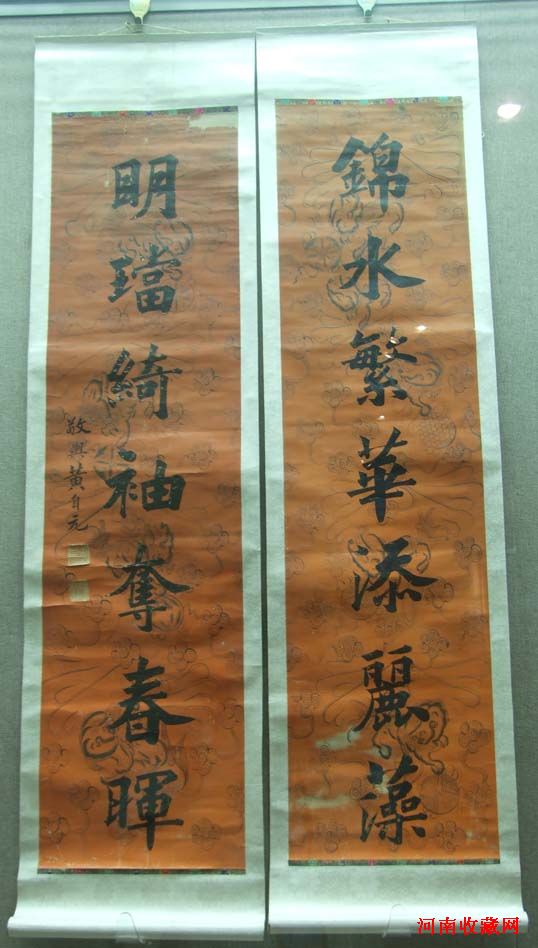 錦水繁華添麗藻
明璫綺袖奪春暉
敬輿黃自元
河南收藏网